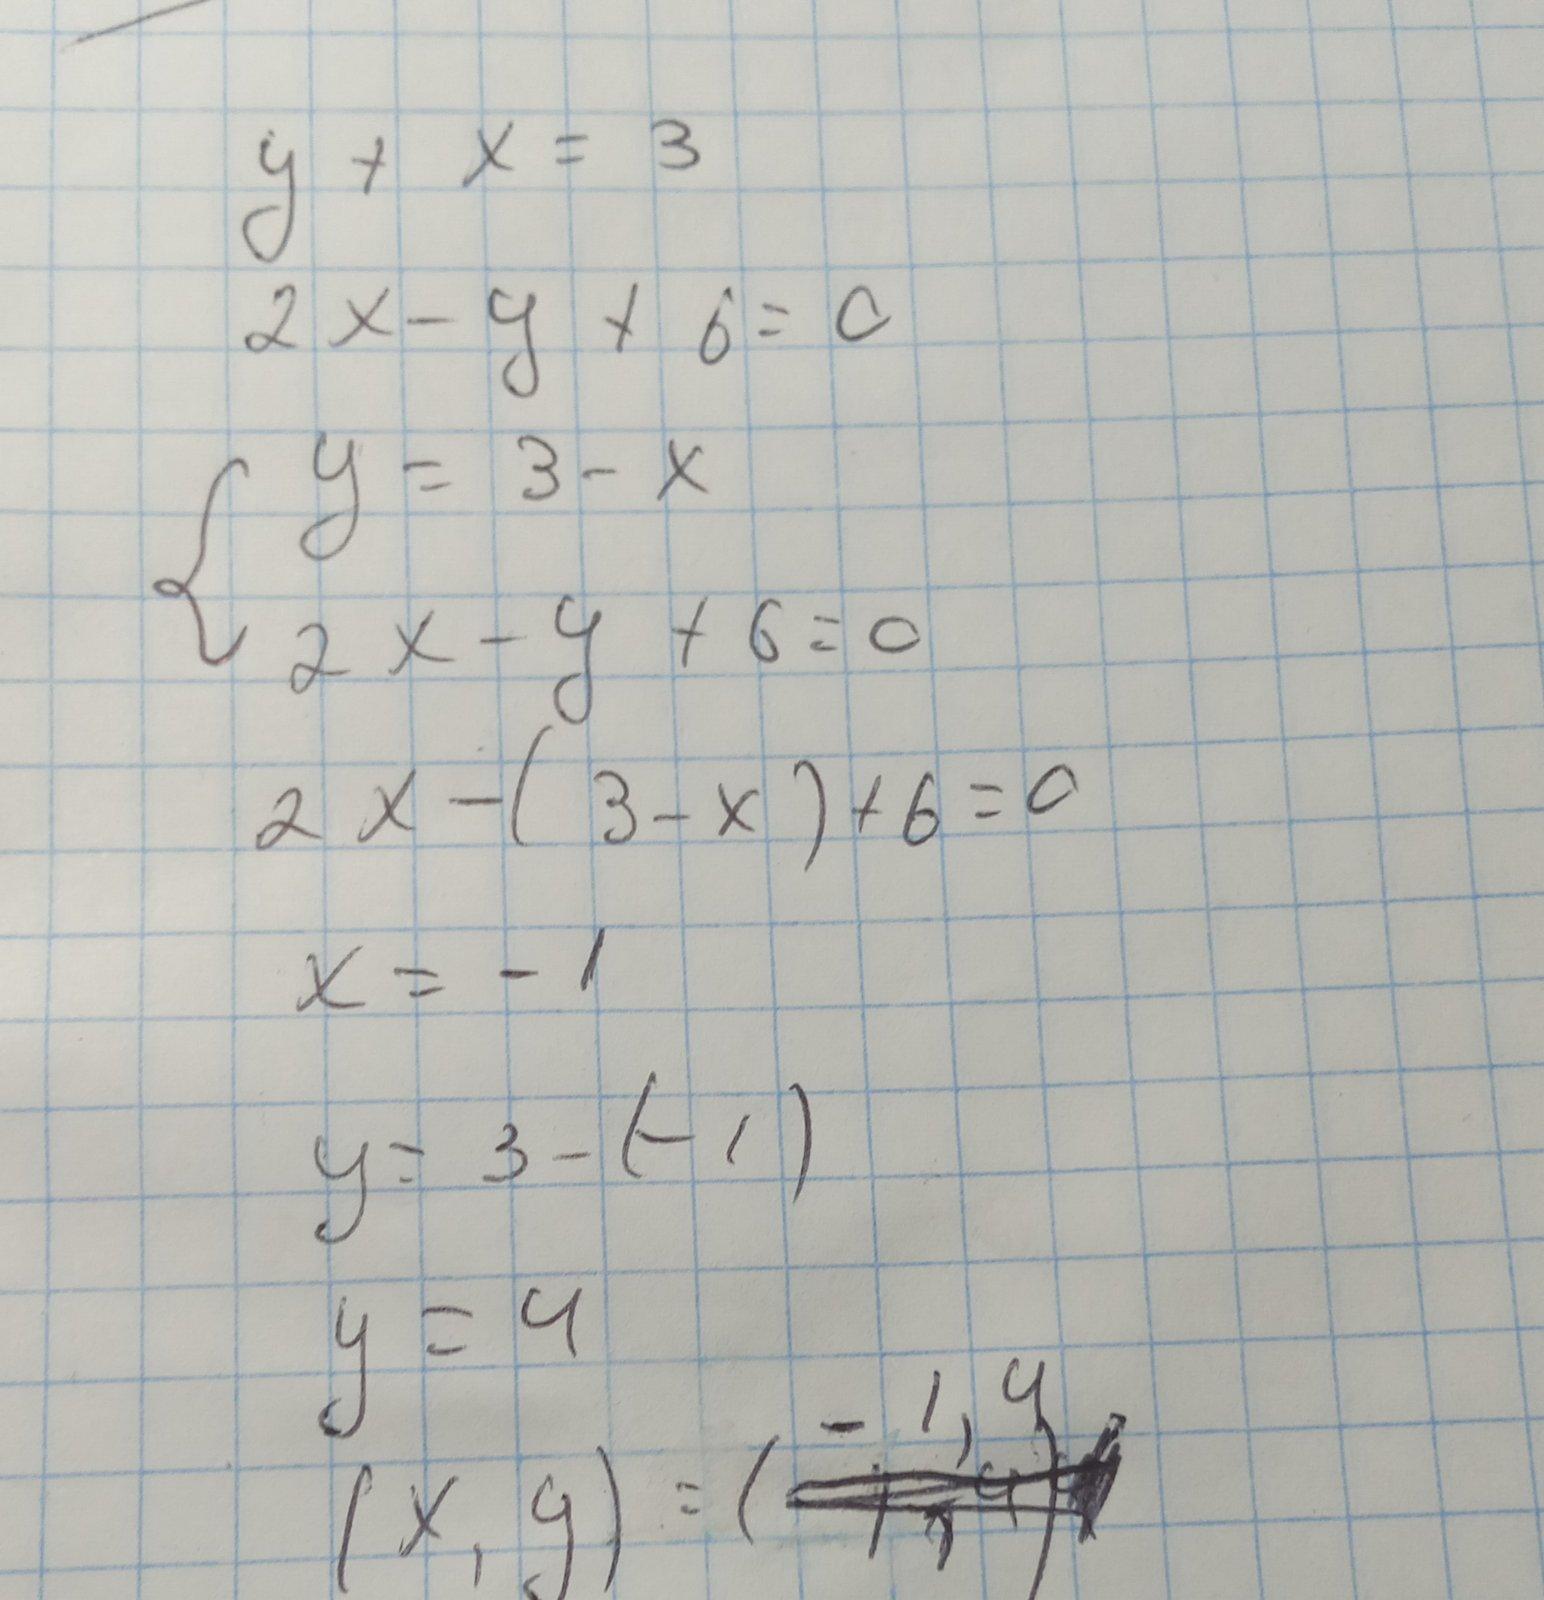 y + x = 3
2x - y + 6 = 0
{ y = 3 - x
2x - y + 6 = 0
2x - (3 - x) + 6 = 0
x = - 1
y = 3 - (- 1)
y = 4
(x, y) = (- 1, 4)